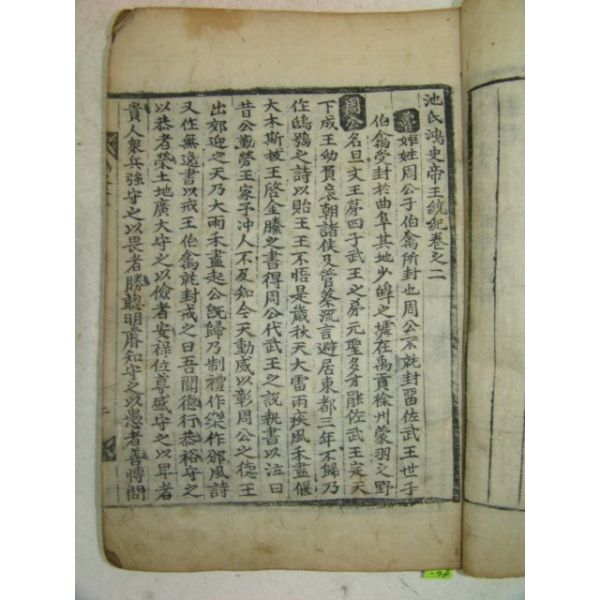 池氏鴻史帝王統紀卷之二
魯 姬姓周公子伯禽所封也周公不就封畱佐武王世子
伯禽受封於曲阜其地少皥之墟在禹貢徐州蒙羽之野
周公 名旦文王第四子武王之弟元聖多才能佐武王定天
下成王幼負扆朝諸侯及管蔡流言避居東都三年不歸乃
作鴟鴞之詩以貽王王不悟是歲秋天大雷雨疾風禾盡偃
大木斯拔王啓金縢之書得周公代武王之說執書以泣曰
昔公勤勞王家予冲人不及知今天動威以彰周公之德王
出郊迎之天乃大雨禾盡起公旣歸乃制禮作樂作邠風詩
又作無逸書以戒王伯禽就封戒之曰吾聞德行恭裕守之
以恭者榮土地廣大守之以儉者安祿位尊盛守之以卑者
貴人衆兵强守之以畏者勝聦明睿知守之以愚者善博問